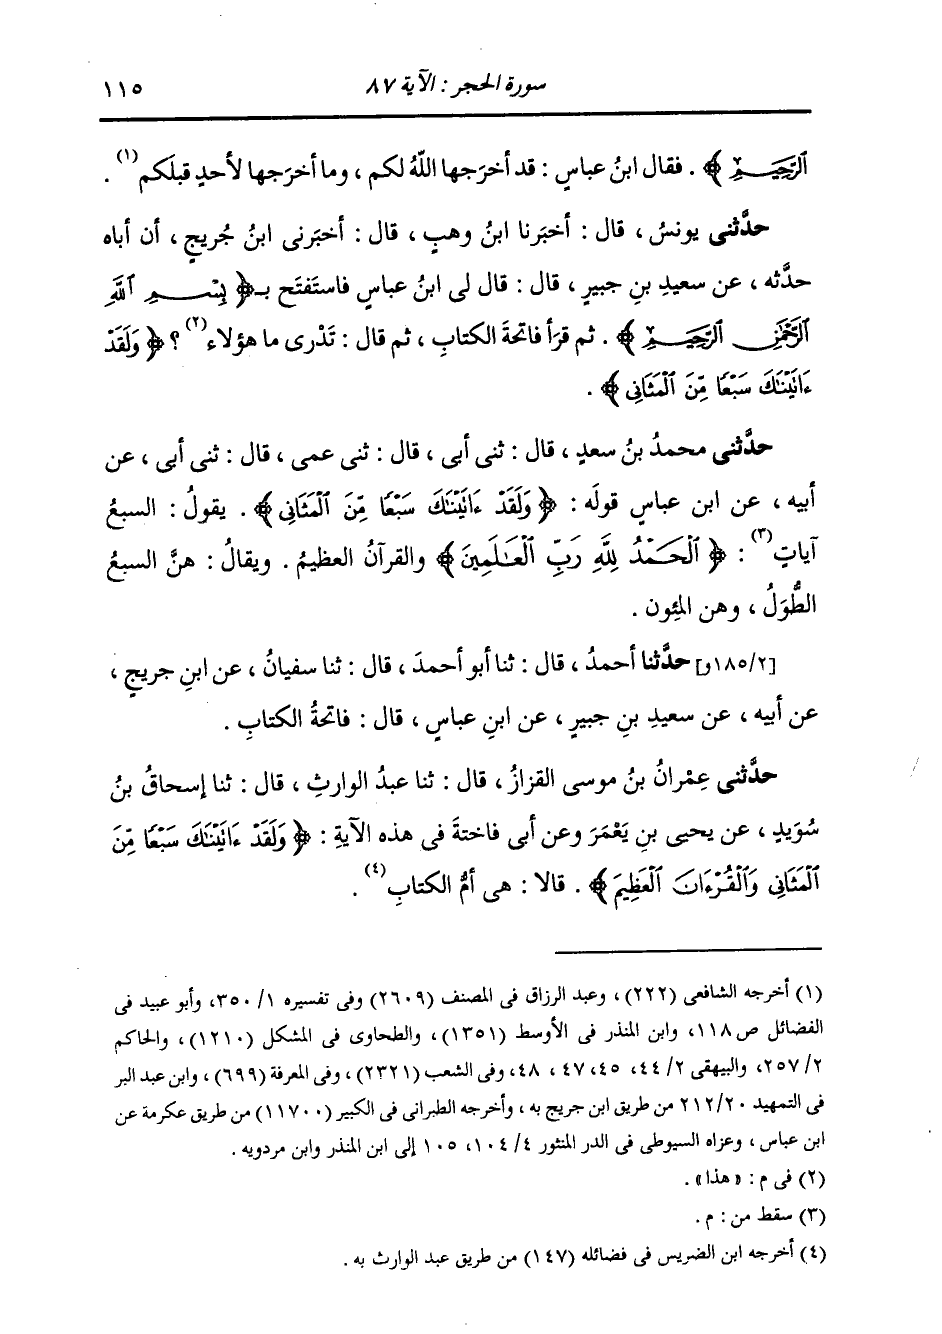 سورة الحجر : الآية ٨٧ ١١٥
ٱلرَّحِيمِ ﴾ . فقال ابنُ عباسٍ : قد أخرَجها اللَّهُ لكم ، وما أخرَجها لأحدٍ قبلَكم(١) .
حدَّثنى يونسُ ، قال : أخبَرنا ابنُ وهبٍ ، قال : أخبَرنى ابنُ جُريجٍ ، أن أباه
حدَّثه ، عن سعيدِ بنِ جبيرٍ ، قال : قال لى ابنُ عباسٍ فاستَفتَح بـ ﴿ بِسْمِ ٱللَّهِ
ٱلرَّحْمَٰنِ ٱلرَّحِيمِ ﴾ . ثم قرَأ فاتحةَ الكتابِ ، ثم قال : تَدْرى ما هؤلاء(٢) ؟ ﴿ وَلَقَدْ
ءَاتَيْنَٰكَ سَبْعًا مِّنَ ٱلْمَثَانِى ﴾ .
حدَّثنى محمدُ بنُ سعدٍ ، قال : ثنى أبى ، قال : ثنى عمى ، قال : ثنى أبى ، عن
أبيه ، عن ابن عباسٍ قولَه : ﴿ وَلَقَدْ ءَاتَيْنَٰكَ سَبْعًا مِّنَ ٱلْمَثَانِى ﴾ . يقولُ : السبعُ
آياتٍ(٣) : ﴿ ٱلْحَمْدُ لِلَّهِ رَبِّ ٱلْعَٰلَمِينَ ﴾ والقرآنُ العظيمُ . ويقالُ : هنَّ السبعُ
الطُّوَلُ ، وهن المِئون .
[١٨٥/٢و] حدَّثنا أحمدُ ، قال : ثنا أبو أحمدَ ، قال : ثنا سفيانُ ، عن ابنِ جريجٍ ،
عن أبيه ، عن سعيدِ بنِ جبيرٍ ، عن ابنِ عباسٍ ، قال : فاتحةُ الكتابِ .
حدَّثنى عِمْرانُ بنُ موسى القزازُ ، قال : ثنا عبدُ الوارثِ ، قال : ثنا إسحاقُ بنُ
سُويدٍ ، عن يحيى بنِ يَعْمَرَ وعن أبى فاختةَ فى هذه الآيةِ : ﴿ وَلَقَدْ ءَاتَيْنَٰكَ سَبْعًا مِّنَ
ٱلْمَثَانِى وَٱلْقُرْءَانَ ٱلْعَظِيمَ ﴾ . قالا : هى أمُّ الكتابِ(٤) .
(١) أخرجه الشافعى (٢٢٢) ، وعبد الرزاق فى المصنف (٢٦٠٩) وفى تفسيره ١/ ٣٥٠، وأبو عبيد فى
الفضائل ص ١١٨، وابن المنذر فى الأوسط (١٣٥١) ، والطحاوى فى المشكل (١٢١٠) ، والحاكم
٢/ ٢٥٧، والبيهقى ٢/ ٤٤، ٤٥، ٤٧ ، ٤٨، وفى الشعب (٢٣٢١) ، وفى المعرفة (٦٩٩) ، وابن عبد البر
فى التمهيد ٢١٢/٢٠ من طريق ابن جريج به ، وأخرجه الطبرانى فى الكبير (١١٧٠٠) من طريق عكرمة عن
ابن عباس ، وعزاه السيوطى فى الدر المنثور ٤/ ١٠٤، ١٠٥ إلى ابن المنذر وابن مردويه .
(٢) فى م : « هذا » .
(٣) سقط من : م .
(٤) أخرجه ابن الضريس فى فضائله (١٤٧) من طريق عبد الوارث به .